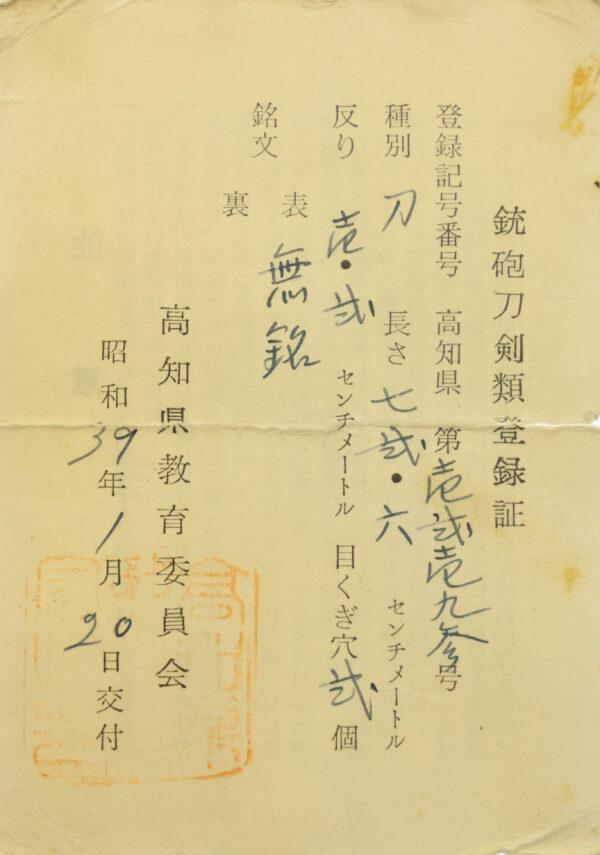 銃砲刀剣類登録証
登録記号番号 高知県 第壱弐壱九参号
種別 刀 長さ 七弐・六 センチメートル
反り 壱・弐 センチメートル 目くぎ穴 弐 個
銘文 表 無銘
裏
高知県教育委員会
昭和39年1月20日交付